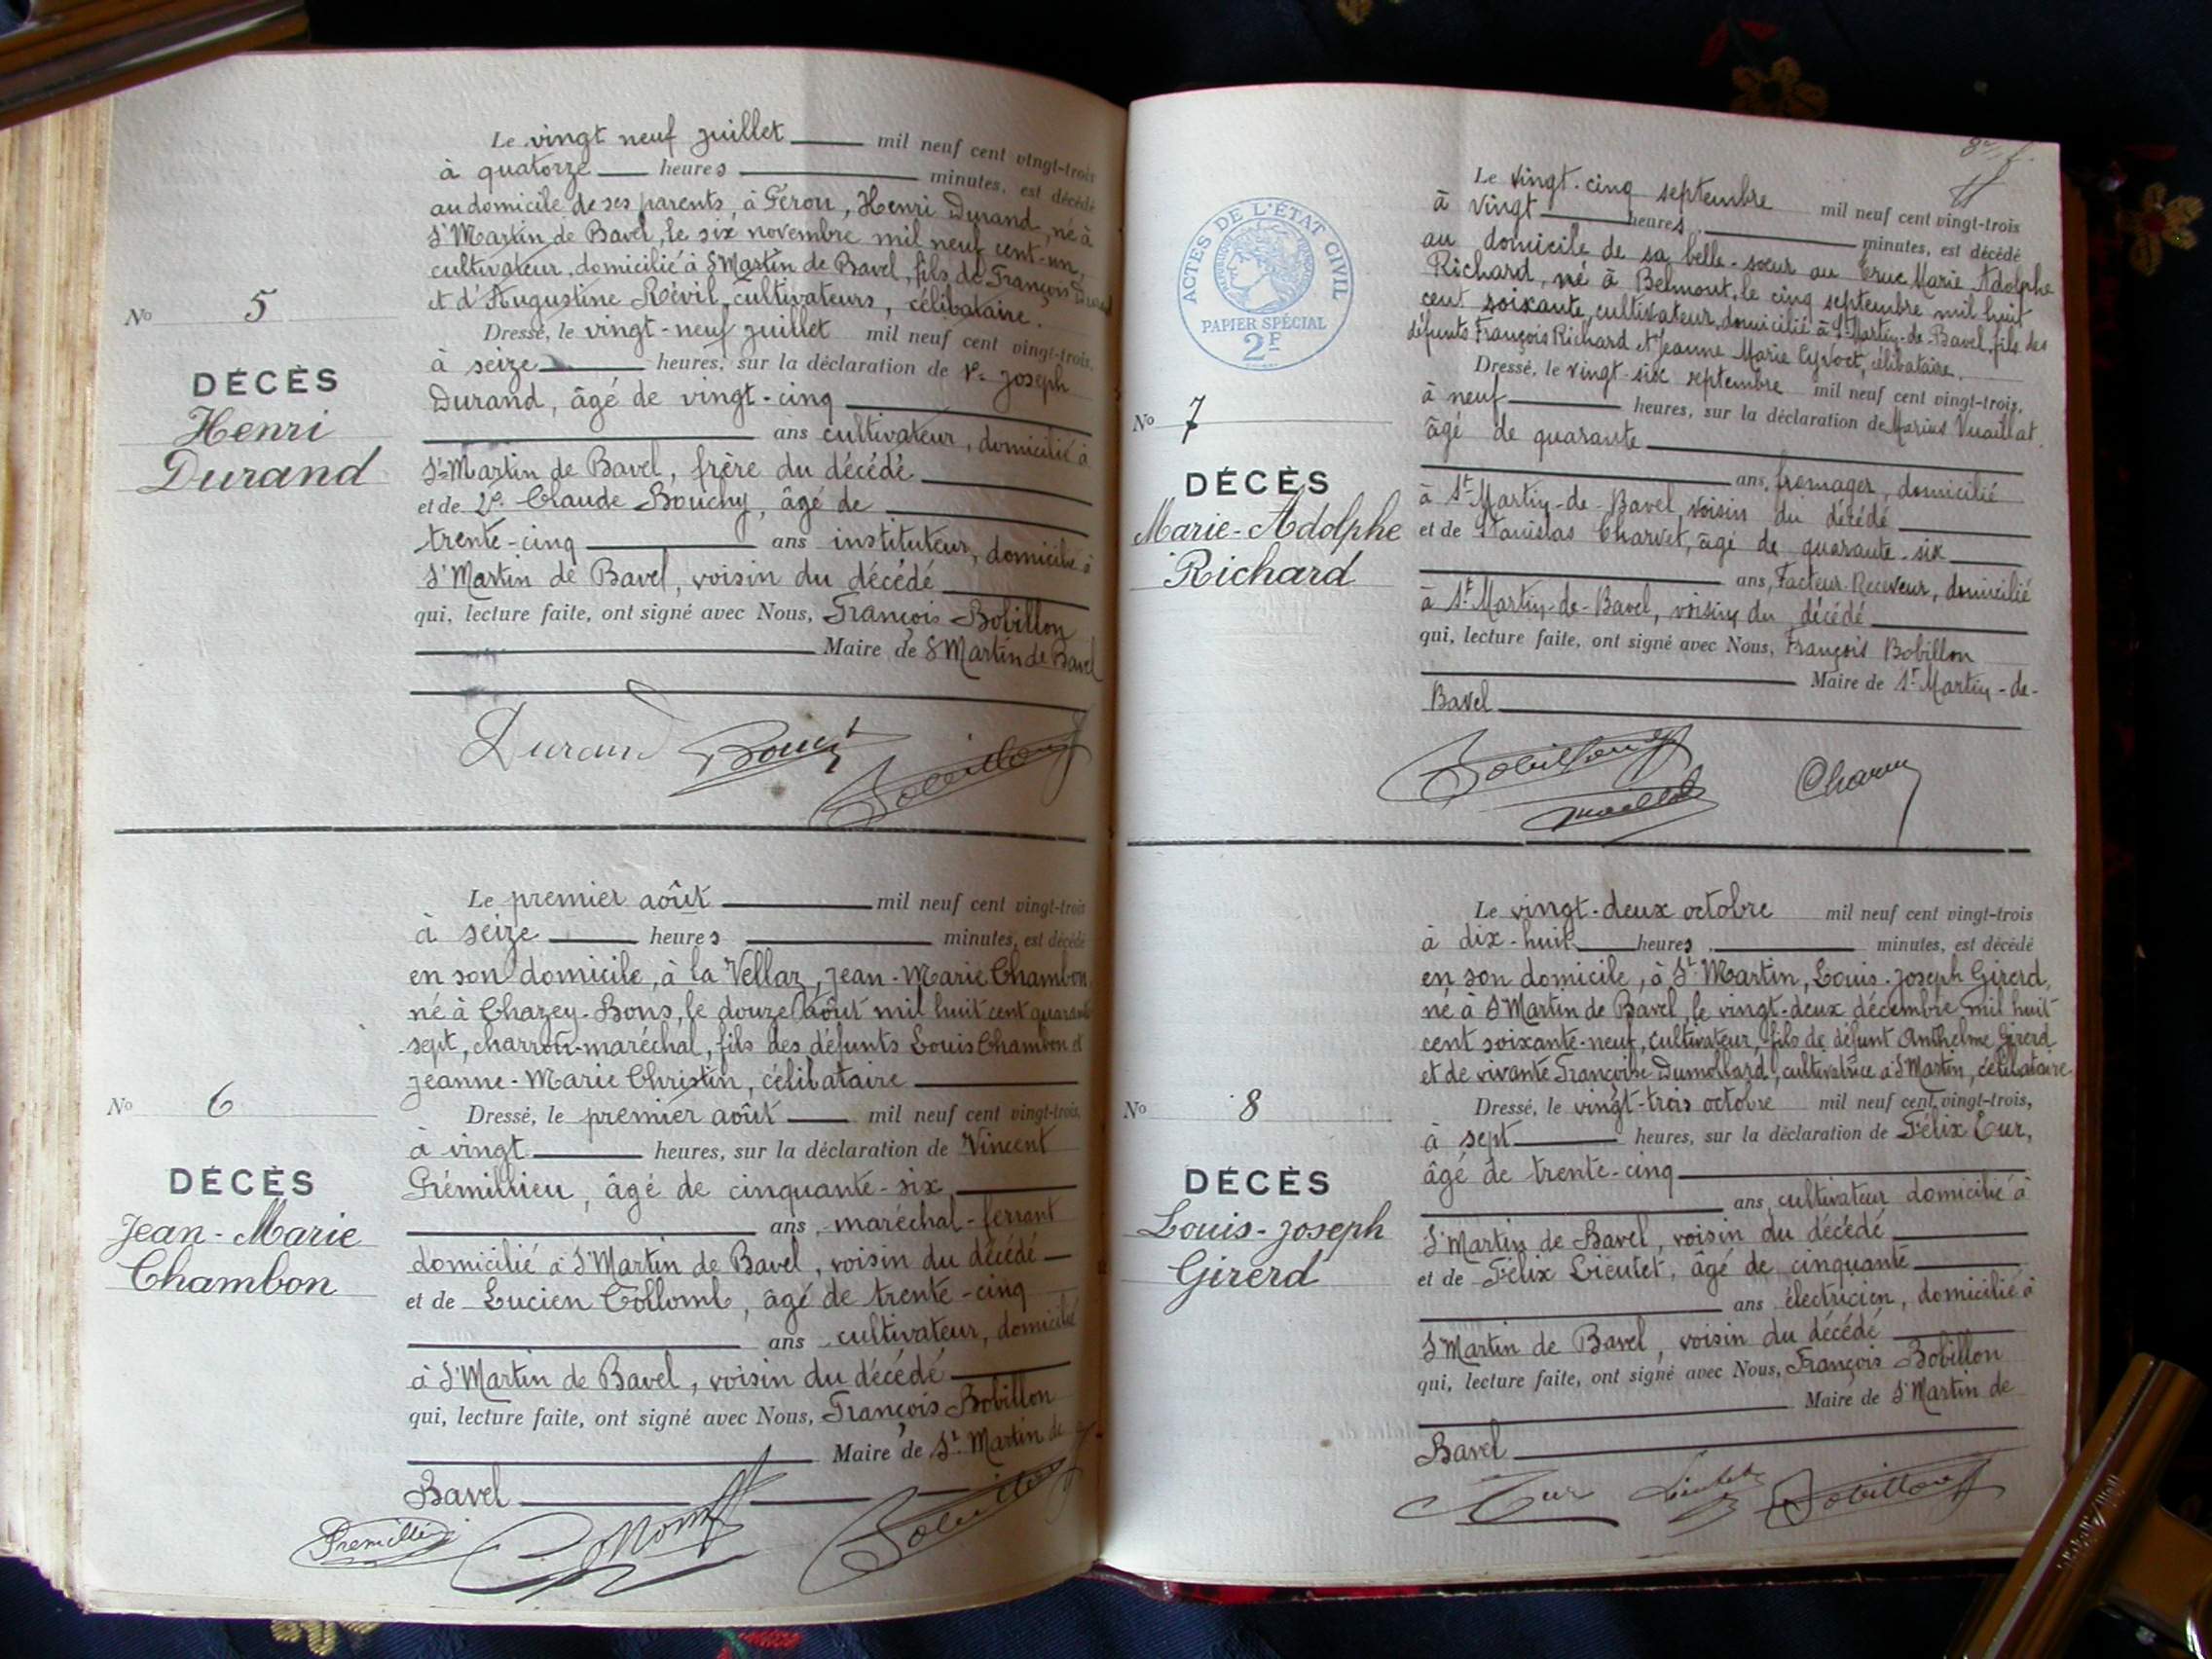 Le vingt neuf juillet mil neuf cent vingt-trois
à quatorze heures minutes, est décédé
au domicile de ses parents, à Gérou, Henri Durand, né à
St Martin de Bavel, le six novembre mil neuf cent-un,
cultivateur, domicilié à St Martin de Bavel, fils de François Durand
et d'Augustine Révil, cultivateurs, célibataire.
No 5
DÉCÈS
Henri
Durand
Dressé, le vingt-neuf juillet mil neuf cent vingt-trois,
à seize heures, sur la déclaration de 1º Joseph
Durand, âgé de vingt-cinq
ans cultivateur, domicilié à
St Martin de Bavel, frère du décédé
et de 2º Claude Bouchy, âgé de
trente-cinq ans instituteur, domicilié à
St Martin de Bavel, voisin du décédé
qui, lecture faite, ont signé avec Nous, François Bobillon
Maire de St Martin de Bavel
Durand Bouchy Bobillon
Le premier août mil neuf cent vingt-trois
à seize heures minutes, est décédé
en son domicile, à la Vellaz, Jean-Marie Chambon,
né à Chazey-Bons, le douze août mil huit cent quarante
-sept, charron-maréchal, fils des défunts Louis Chambon et
Jeanne-Marie Christin, célibataire
No 6
DÉCÈS
Jean-Marie
Chambon
Dressé, le premier août mil neuf cent vingt-trois,
à vingt heures, sur la déclaration de Vincent
Prémillieu, âgé de cinquante-six
ans, maréchal-ferrant
domicilié à St Martin de Bavel, voisin du décédé
et de Lucien Collomb, âgé de trente-cinq
ans cultivateur, domicilié
à St Martin de Bavel, voisin du décédé
qui, lecture faite, ont signé avec Nous, François Bobillon
Maire de St Martin de
Bavel
Premilli Collomb Bobillon
ACTES DE L'ÉTAT CIVIL
PAPIER SPÉCIAL
2F
Le vingt-cinq septembre mil neuf cent vingt-trois
à vingt heures minutes, est décédé
au domicile de sa belle-sœur au Truc Marie Adolphe
Richard, né à Belmont, le cinq septembre mil huit
cent soixante, cultivateur, domicilié à St Martin-de-Bavel, fils des
défunts François Richard et Jeanne Marie Cyvoct, célibataire.
No 7
DÉCÈS
Marie-Adolphe
Richard
Dressé, le vingt-six septembre mil neuf cent vingt-trois,
à neuf heures, sur la déclaration de Marius Vuaillat
âgé de quarante
ans, fromager, domicilié
à St Martin-de-Bavel, voisin du décédé
et de Stanislas Charvet, âgé de quarante-six
ans, Facteur-Receveur, domicilié
à St Martin-de-Bavel, voisin du décédé
qui, lecture faite, ont signé avec Nous, François Bobillon
Maire de St Martin-de-
Bavel
Bobillon Charvet
Le vingt-deux octobre mil neuf cent vingt-trois
à dix-huit heures minutes, est décédé
en son domicile, à St Martin, Louis-Joseph Girerd,
né à St Martin de Bavel, le vingt-deux décembre mil huit
cent soixante-neuf, cultivateur, fils de défunt Anthelme Girerd
et de vivante Françoise Dumollard, cultivatrice à St Martin, célibataire
No 8
DÉCÈS
Louis-Joseph
Girerd
Dressé, le vingt-trois octobre mil neuf cent vingt-trois,
à sept heures, sur la déclaration de Félix Cur,
âgé de trente-cinq
ans cultivateur domicilié à
St Martin de Bavel, voisin du décédé
et de Félix Lieutet, âgé de cinquante
ans électricien, domicilié à
St Martin de Bavel, voisin du décédé
qui, lecture faite, ont signé avec Nous, François Bobillon
Maire de St Martin de
Bavel
Cur Lieutet Bobillon